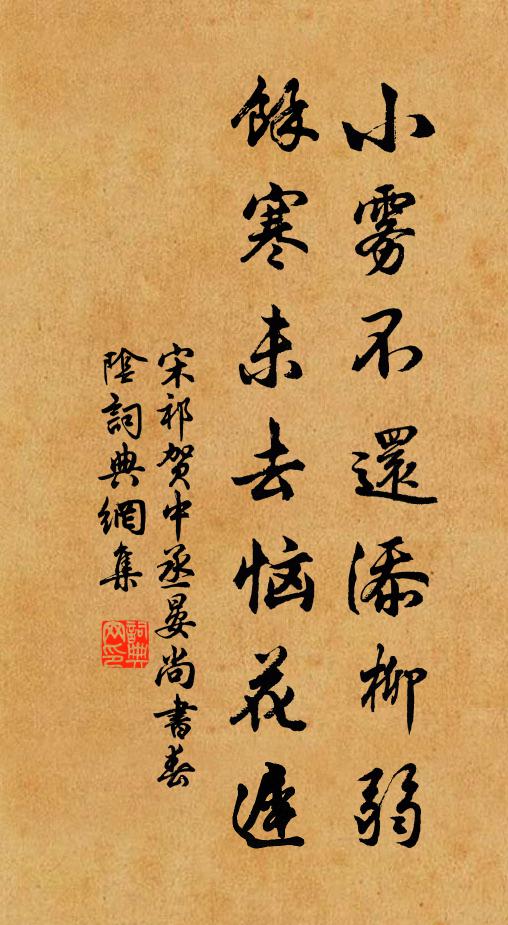 小雾不還添柳弱
餘寒未去恼花遅
宋祁贺中丞晏尚書春
陰詞典網集
詞典
网印